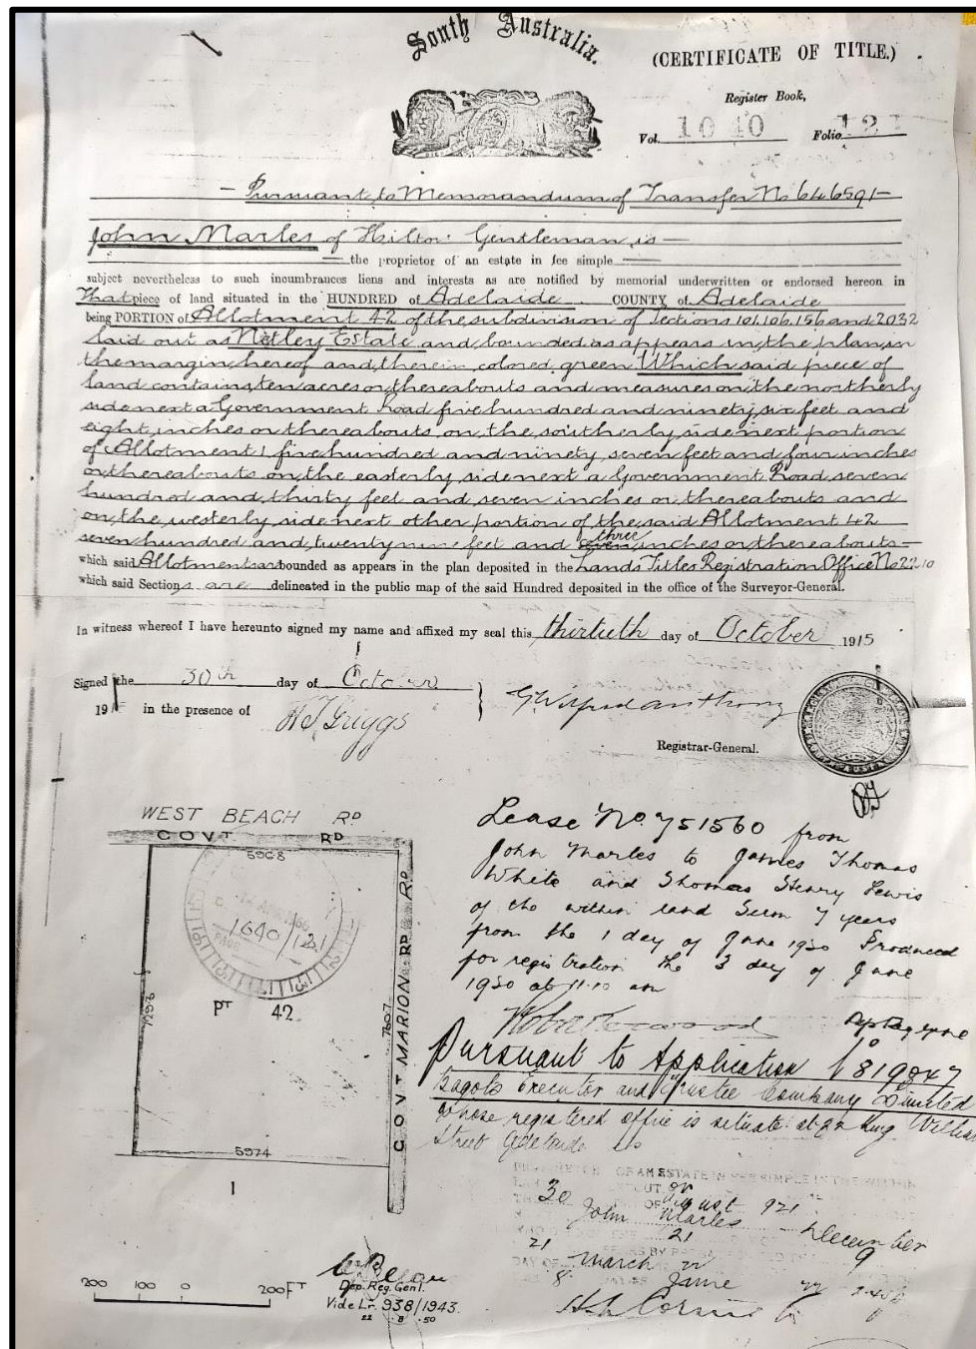 South Australia.
(CERTIFICATE OF TITLE.)
Register Book,
Vol. 1040 Folio 121
— Pursuant to Memorandum of Transfer No 646591 —
John Marles of Hilton Gentleman is —
— the proprietor of an estate in fee simple —
subject nevertheless to such incumbrances liens and interests as are notified by memorial underwritten or endorsed hereon in
That piece of land situated in the HUNDRED of Adelaide COUNTY of Adelaide
being PORTION of Allotment 42 of the subdivision of Sections 101.106.156 and 2032
laid out as Netley Estate and bounded as appears in the plan in
the margin hereof and therein colored green Which said piece of
land contains ten acres or thereabouts and measures on the northerly
side next a Government Road five hundred and ninety six feet and
eight inches or thereabouts on the southerly side next portion
of Allotment 1 five hundred and ninety seven feet and four inches
or thereabouts on the easterly side next a Government Road seven
hundred and thirty feet and seven inches or thereabouts and
on the westerly side next other portion of the said Allotment 42
seven hundred and twenty nine feet and three inches or thereabouts —
which said Allotments are bounded as appears in the plan deposited in the Lands Titles Registration Office No 2210
which said Sections are delineated in the public map of the said Hundred deposited in the office of the Surveyor-General.
In witness whereof I have hereunto signed my name and affixed my seal this thirtieth day of October 1915
Signed the 30th day of October
191 in the presence of
Registrar-General.
WEST BEACH RD
GOVT RD
5968
1640/121
7293
PT 42
7307
GOVT MARION RD RD
5974
1
200 100 0 200FT
Dep. Reg. Genl.
Vide Lr. 938/1943.
22 . 8 . 50
Lease No 751560 from
John Marles to James Thomas
White and Thomas Henry Lewis
of the within land Term 7 years
from the 1 day of June 1920 Produced
for registration the 3 day of June
1920 at 11.10 am
Pursuant to Application No 819847
Bagots Executor and Trustee Company Limited
whose registered office is situate at 22 King William
Street Adelaide is
OF AN ESTATE IN FEE SIMPLE IN THE WITHIN
30 August 1921
John Marles
21 December
21 March 9
8 June